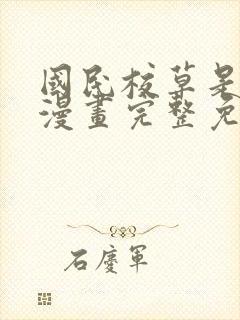 國民校草是
漫畫完整免
石慶軍